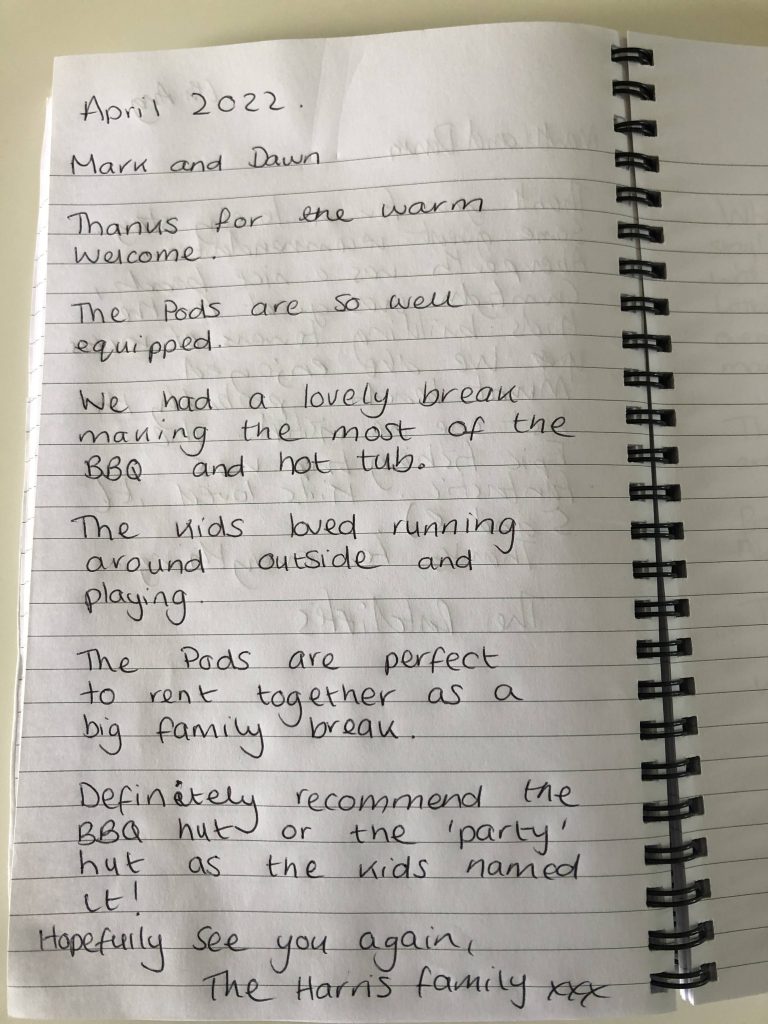 April 2022.
Mark and Dawn
Thanks for the warm
welcome.
The Pods are so well
equipped.
We had a lovely break
making the most of the
BBQ and hot tub.
The kids loved running
around outside and
playing.
The Pods are perfect
to rent together as a
big family break.
Definitely recommend the
BBQ hut or the 'party'
hut as the kids named
it!
Hopefully see you again,
The Harris family xxx